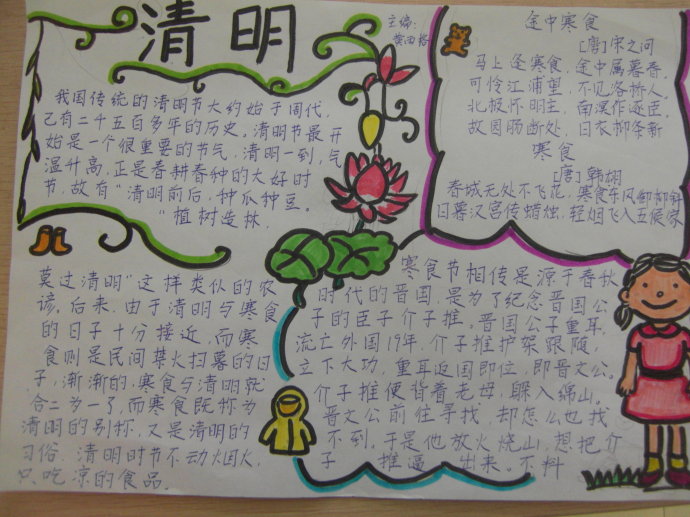 清明
主编:
我国传统的清明节大约始于周代,
已有二千五百多年的历史。清明节最开
始是一个很重要的节气,清明一到,气
温升高,正是春耕春种的大好时
节,故有“清明前后,种瓜种豆。
“植树造林,
莫过清明”这样类似的农
谚。后来,由于清明与寒食
的日子十分接近,而寒
食则是民间禁火扫墓的日
子,渐渐的,寒食与清明就
合二为一了,而寒食既称为
清明的别称,又是清明的
习俗,清明时节不动烟火,
只吃凉的食品。
途中寒食
[唐]宋之问
马上逢寒食,途中属暮春。
可怜江浦望,不见洛桥人。
北极怀明主,南溟作逐臣。
故园肠断处,日衣柳条新
寒食
[唐]韩翃
春城无处不飞花,寒食东风御柳斜
日暮汉宫传蜡烛,轻烟飞入五侯家
寒食节相传是源于春秋
时代的晋国,是为了纪念晋国公
子的臣子介子推。晋国公子重耳,
流亡外国19年,介子推护驾跟随,
立下大功,重耳返国即位,即晋文公。
介子推便背着老母,躲入绵山。
晋文公前往寻找,却怎么也找
不到,于是他放火烧山,想把介
子推逼出来。不料